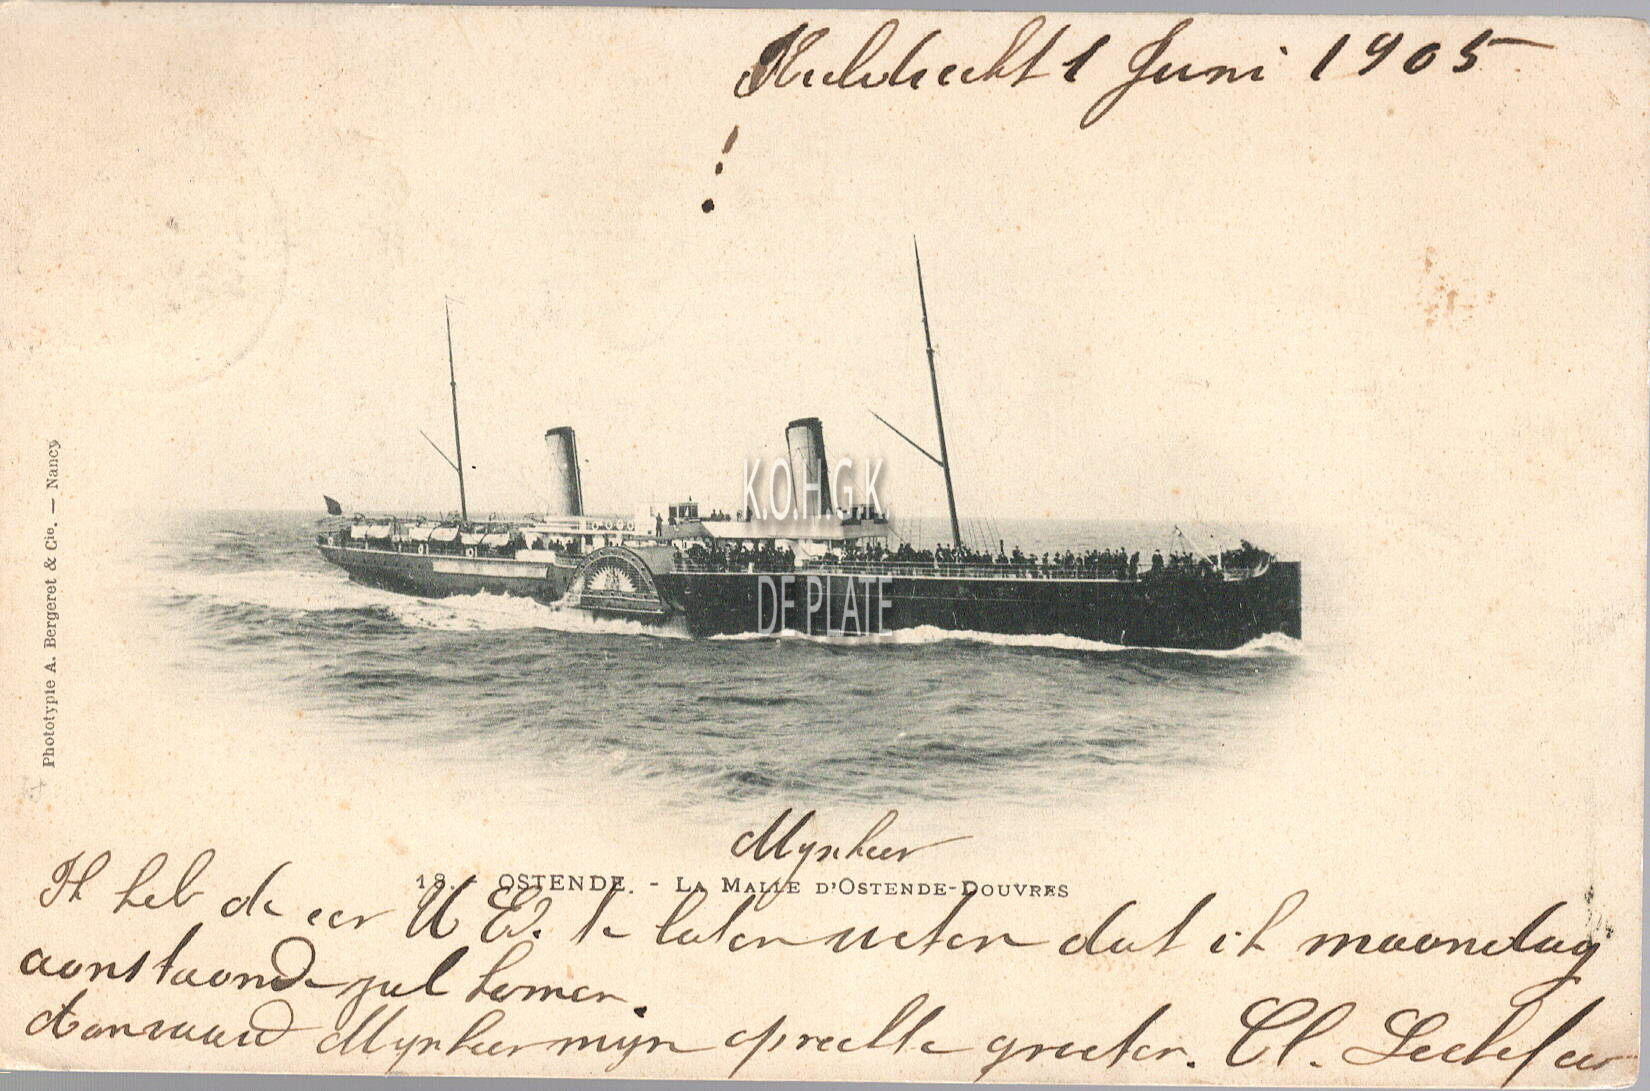 1 Juni 1905
!
K.O.H.G.K.
DE PLATE
Phototypie A. Bergeret & Cie. — Nancy
Mynheer
18. OSTENDE. - LA MALLE D'OSTENDE-DOUVRES
Ik heb de eer U Ed. te laten weten dat ik maandag
aanstaande zal komen.
Aanvaard Mynheer mijn oprechte groeten. Cl.